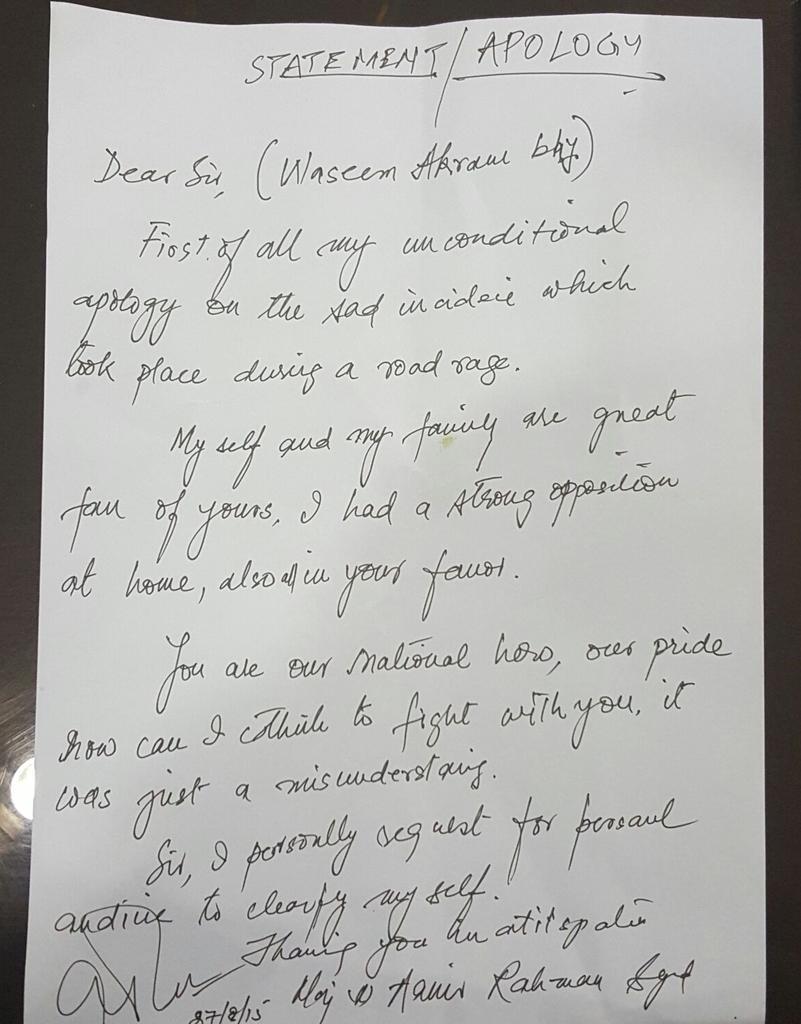 STATEMENT/APOLOGY
Dear Sir, (Waseem Akram bhy)
First of all my unconditional
apology on the sad incidice which
took place during a road rage.
My self and my family are great
fan of yours, I had a strong opposition
at home, also all in your favor.
You are our national hero, our pride
how can I think to fight with you, it
was just a misunderstanig.
Sir, I personally request for personal
audiue to clearfy my self.
Thanig you in
27/8/15 Maj Aamir Rahman